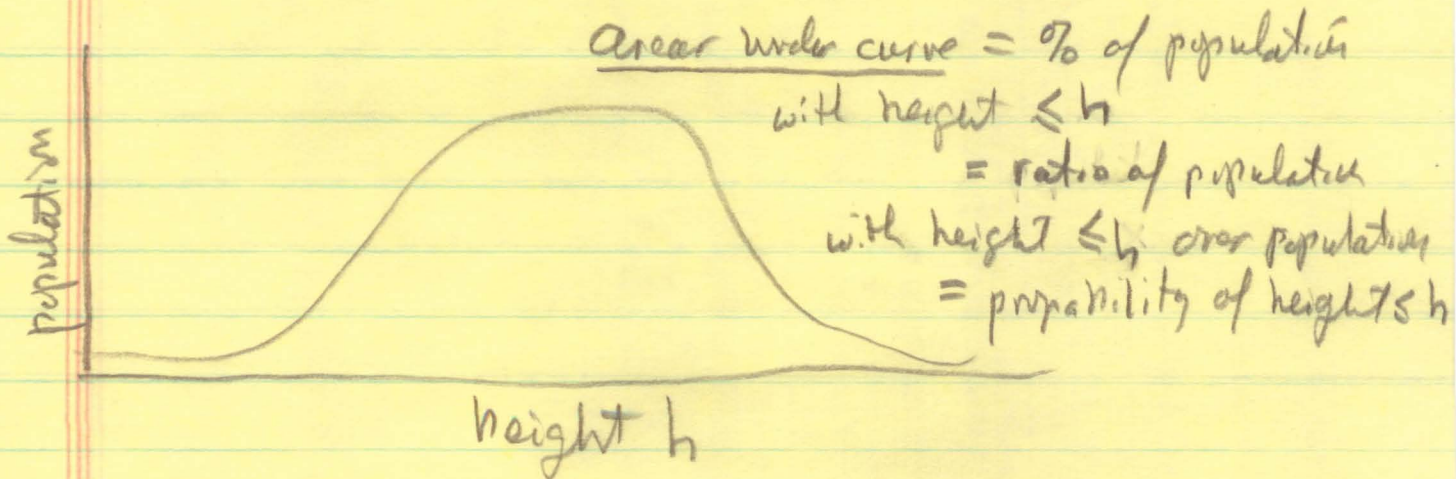 area under curve = % of population
with height ≤ h
= ratio of population
with height ≤ h over population
= propability of height ≤ h
population
height h